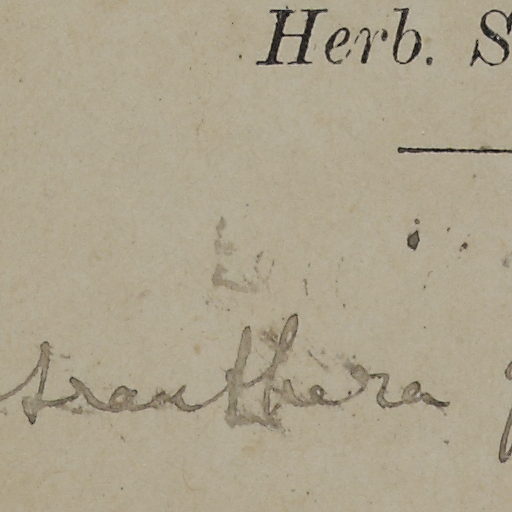 Herb. S
tranthera